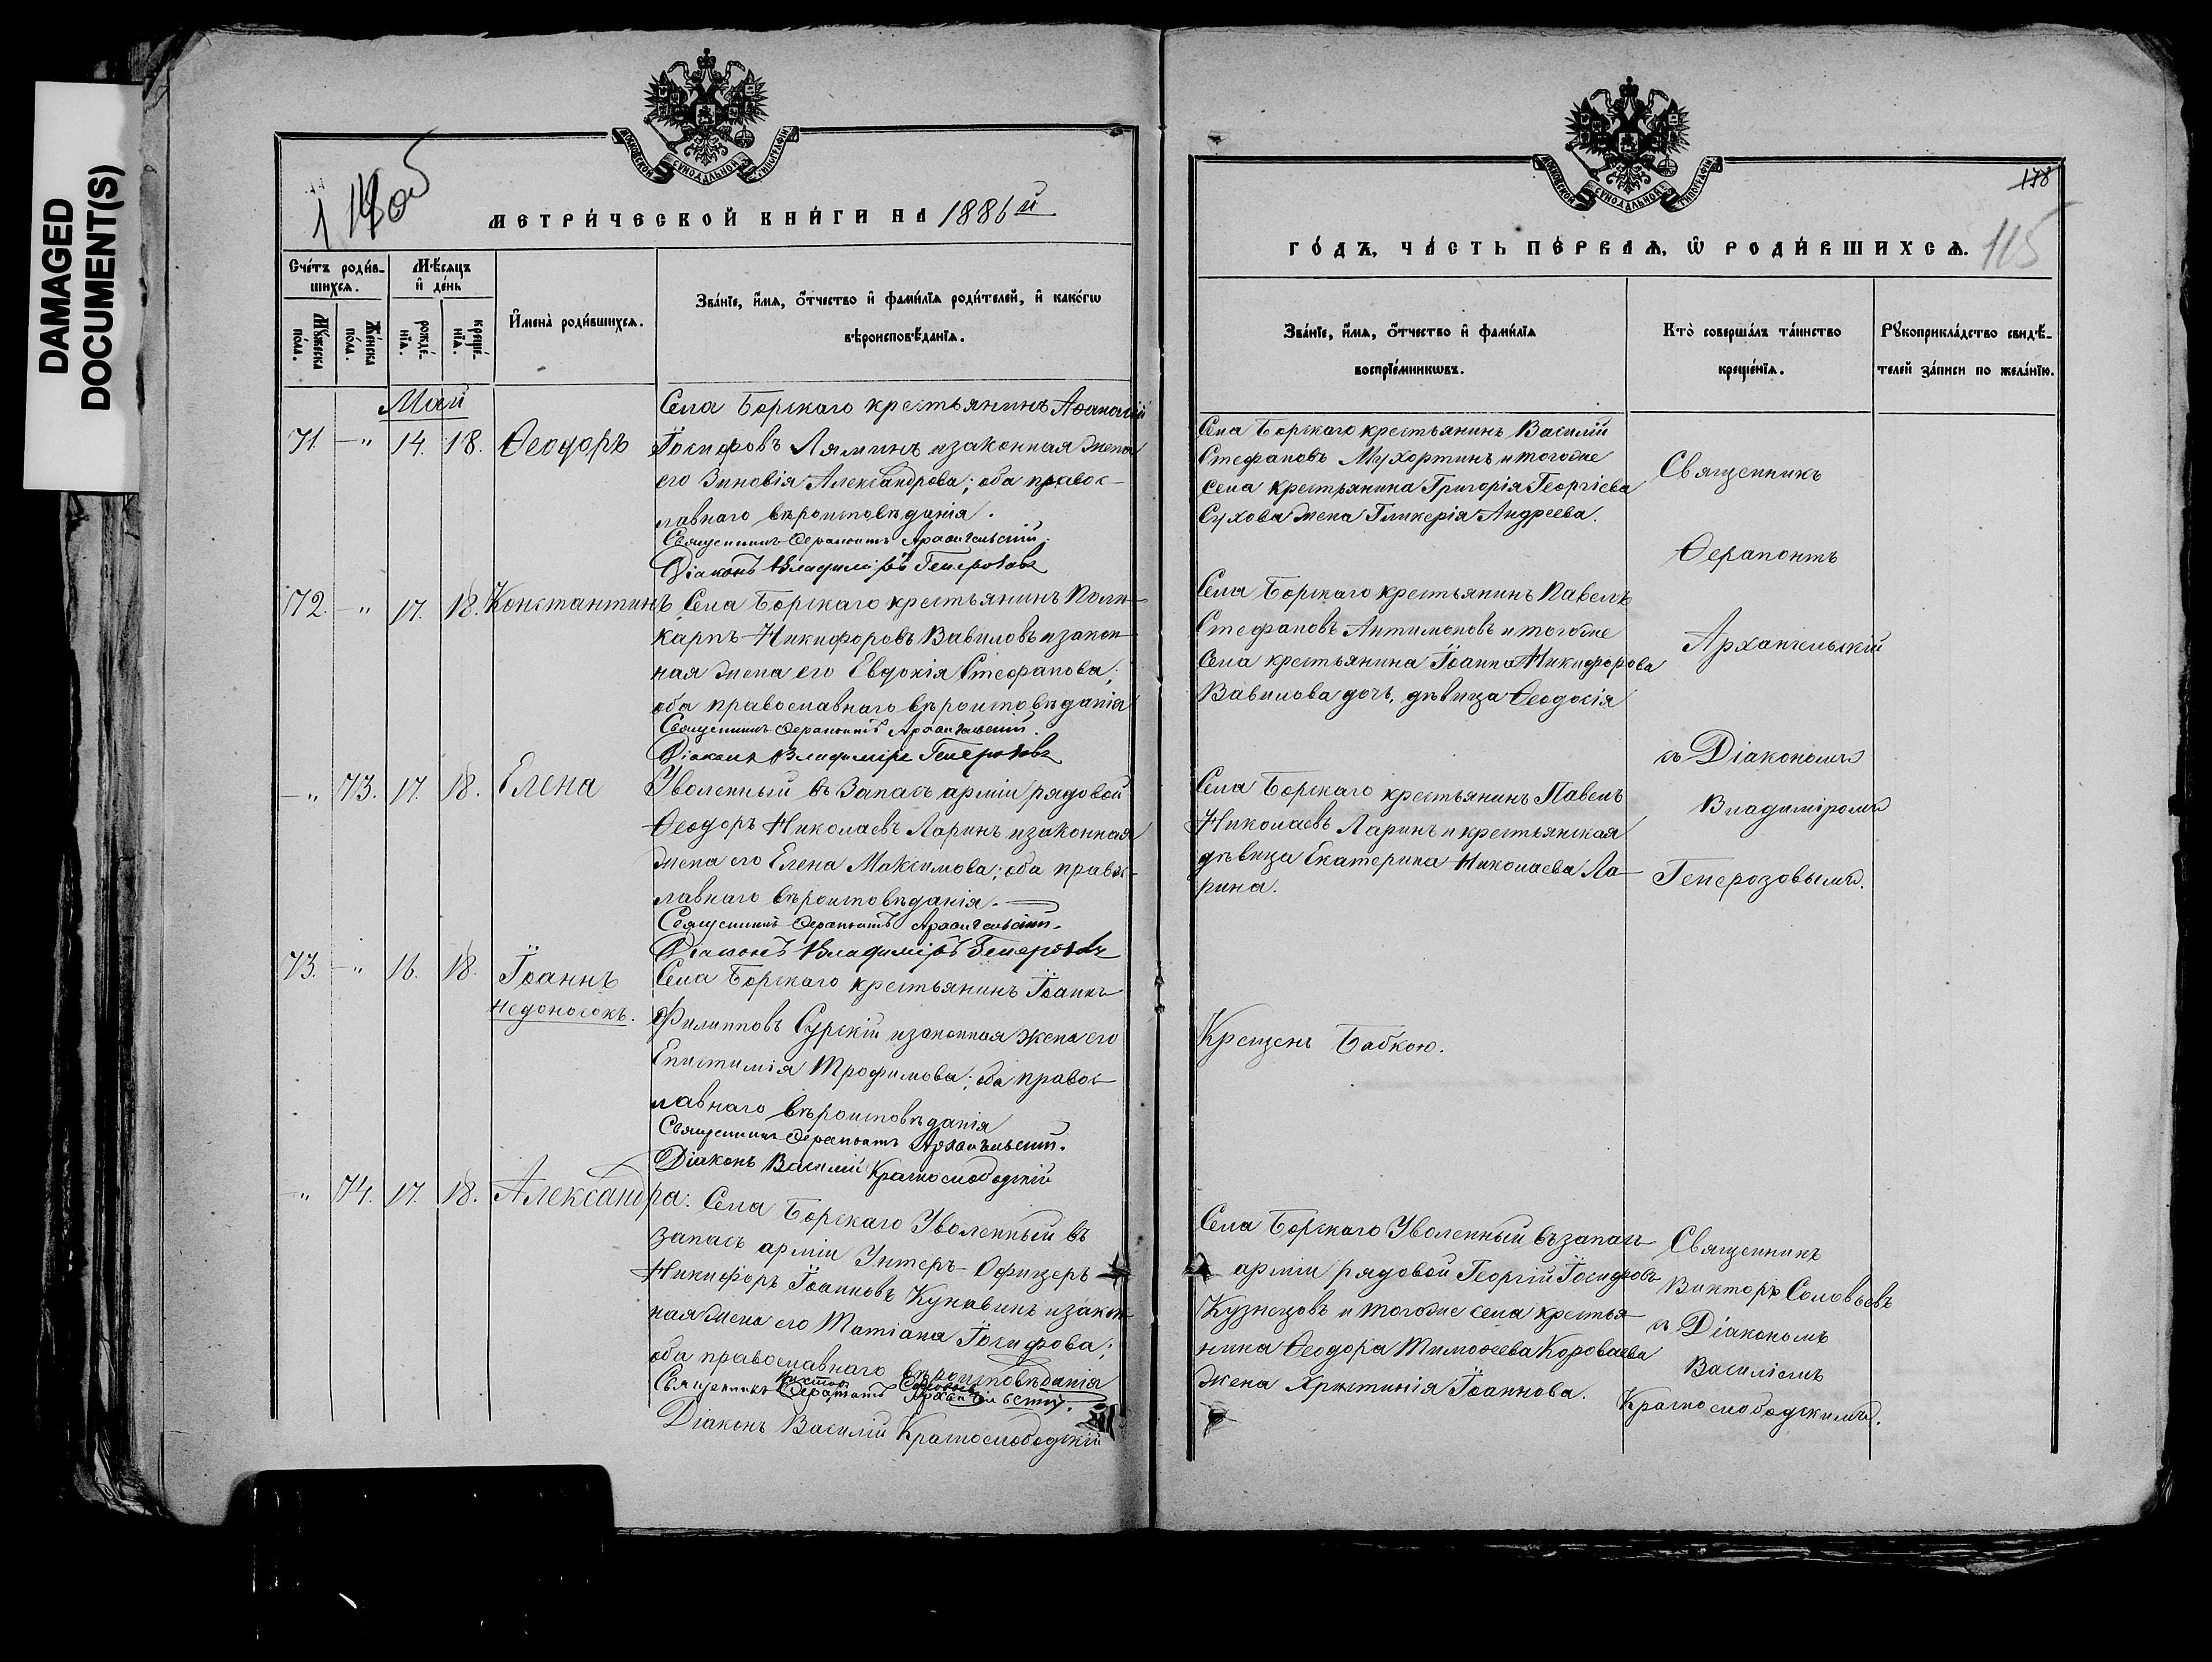 DAMAGED
DOCUMENT(S)
МОСКОВСКОЙ СѴНОДАЛЬНОЙ ТИПОГРАФІИ
МЕТРИ́ЧЕСКОЙ КНИ́ГИ НА 1886й
Сче́тъ роди́в-
шихсѧ.
Мꙋ́жеска
по́ла.
Же́нска
по́ла.
Мѣ́сѧцъ
и҆ де́нь
рожде́-
нїѧ.
креще́-
нїѧ.
И҆мена̀ роди́вшихсѧ.
Зва́нїе, и҆́мѧ, ѻ҆́тчество и҆ фами́лїѧ роди́телей, и҆ како́гѡ
вѣроисповѣ́данїѧ.
Май
71. -" 14. 18. Ѳеодоръ
Села Борскаго крестьянинъ Аѳанасій
Іосифовъ Ляминъ и законная жена
его Зиновія Александрова; оба правос-
лавнаго вѣроисповѣданія.
Священникъ Ѳерапонтъ Архангельскій.
Діаконъ Владиміръ Генерозовъ
72. -" 17. 18. Константинъ.
Села Борскаго крестьянинъ Поли-
карпъ Никифоровъ Вавиловъ и закон-
ная жена его Евдокія Стефанова;
оба православнаго вѣроисповѣданія
Священникъ Ѳерапонтъ Архангельскій.
Діаконъ Владиміръ Генерозовъ
-" 73. 17. 18. Елена
Уволенный въ Запасъ арміи рядовой
Ѳеодоръ Николаевъ Ларинъ и законная
жена его Елена Максимова; оба правос-
лавнаго вѣроисповѣданія.
Священникъ Ѳерапонтъ Архангельскій.
Діаконъ Владиміръ Генерозовъ
73. -" 16. 18. Іоаннъ
Недоносокъ.
Села Борскаго крестьянинъ Іоаннъ
Филипповъ Сурскій и законная жена его
Епистимія Трофимова; оба правос-
лавнаго вѣроисповѣданія
Священникъ Ѳерапонтъ Архангельскій.
Діаконъ Василій Краснослободскій
-" 74. 17. 18. Александра.
Села Борскаго Уволенный въ
запасъ арміи Унтеръ-Офицеръ
Никифоръ Іоанновъ Кунавинъ и закон-
ная жена его Татіана Іосифова;
оба православнаго вѣроисповѣданія
Викторъ Соловьевъ
Священникъ Ѳерапонтъ Архангельскій.
Діаконъ Василій Краснослободскій
МОСКОВСКОЙ СѴНОДАЛЬНОЙ ТИПОГРАФІИ
178
115
ГО́ДЪ, ЧА́СТЬ ПЕ́РВАѦ, Ѡ҆ РОДИ́ВШИХСѦ.
Зва́нїе, и҆́мѧ, ѻ҆́тчество и҆ фами́лїѧ
воспрїе́мникѡвъ.
Кто̀ соверша́лъ та́инство
креще́нїѧ.
Рꙋкоприкла́дство свидѣ́-
телей за́писи по жела́нїю.
Села Борскаго крестьянинъ Василій
Стефановъ Мухортинъ и тогоже
села крестьянина Григорія Георгіева
Сухова жена Гликерія Андреева.
Села Борскаго крестьянинъ Павелъ
Стефановъ Антимоновъ и тогоже
села крестьянина Іоанна Никифорова
Вавилова дочь, дѣвица Ѳеодосія
Села Борскаго крестьянинъ Павелъ
Николаевъ Ларинъ и крестьянская
дѣвица Екатерина Николаева Ла-
рина.
Священникъ
Ѳерапонтъ
Архангельскій
съ Діакономъ
Владиміромъ
Генерозовымъ.
Крещенъ Бабкою.
Села Борскаго Уволенный въ запасъ
арміи рядовой Георгій Іосифовъ
Кузнецовъ и тогоже села крестья-
нина Ѳеодора Тимоѳеева Короваева
жена Христинія Іоаннова.
Священникъ
Викторъ Соловьевъ
съ Діакономъ
Василіемъ
Краснослободскимъ.